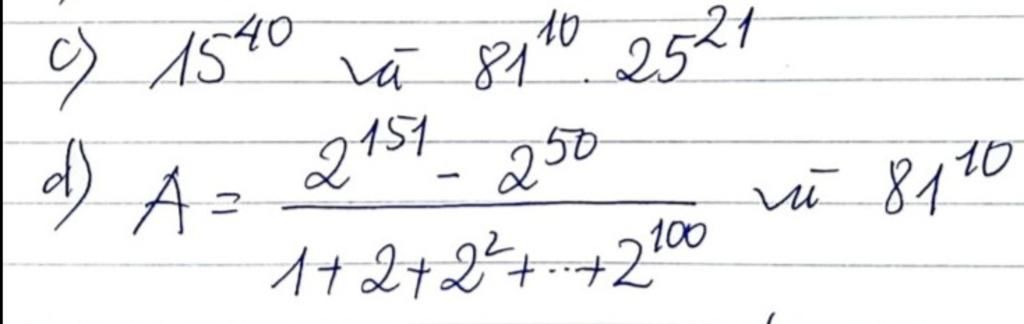 c) 15^40 và 81^10 . 25^21
d) A = (2^151 - 2^50) / (1 + 2 + 2^2 + ... + 2^100) và 81^10